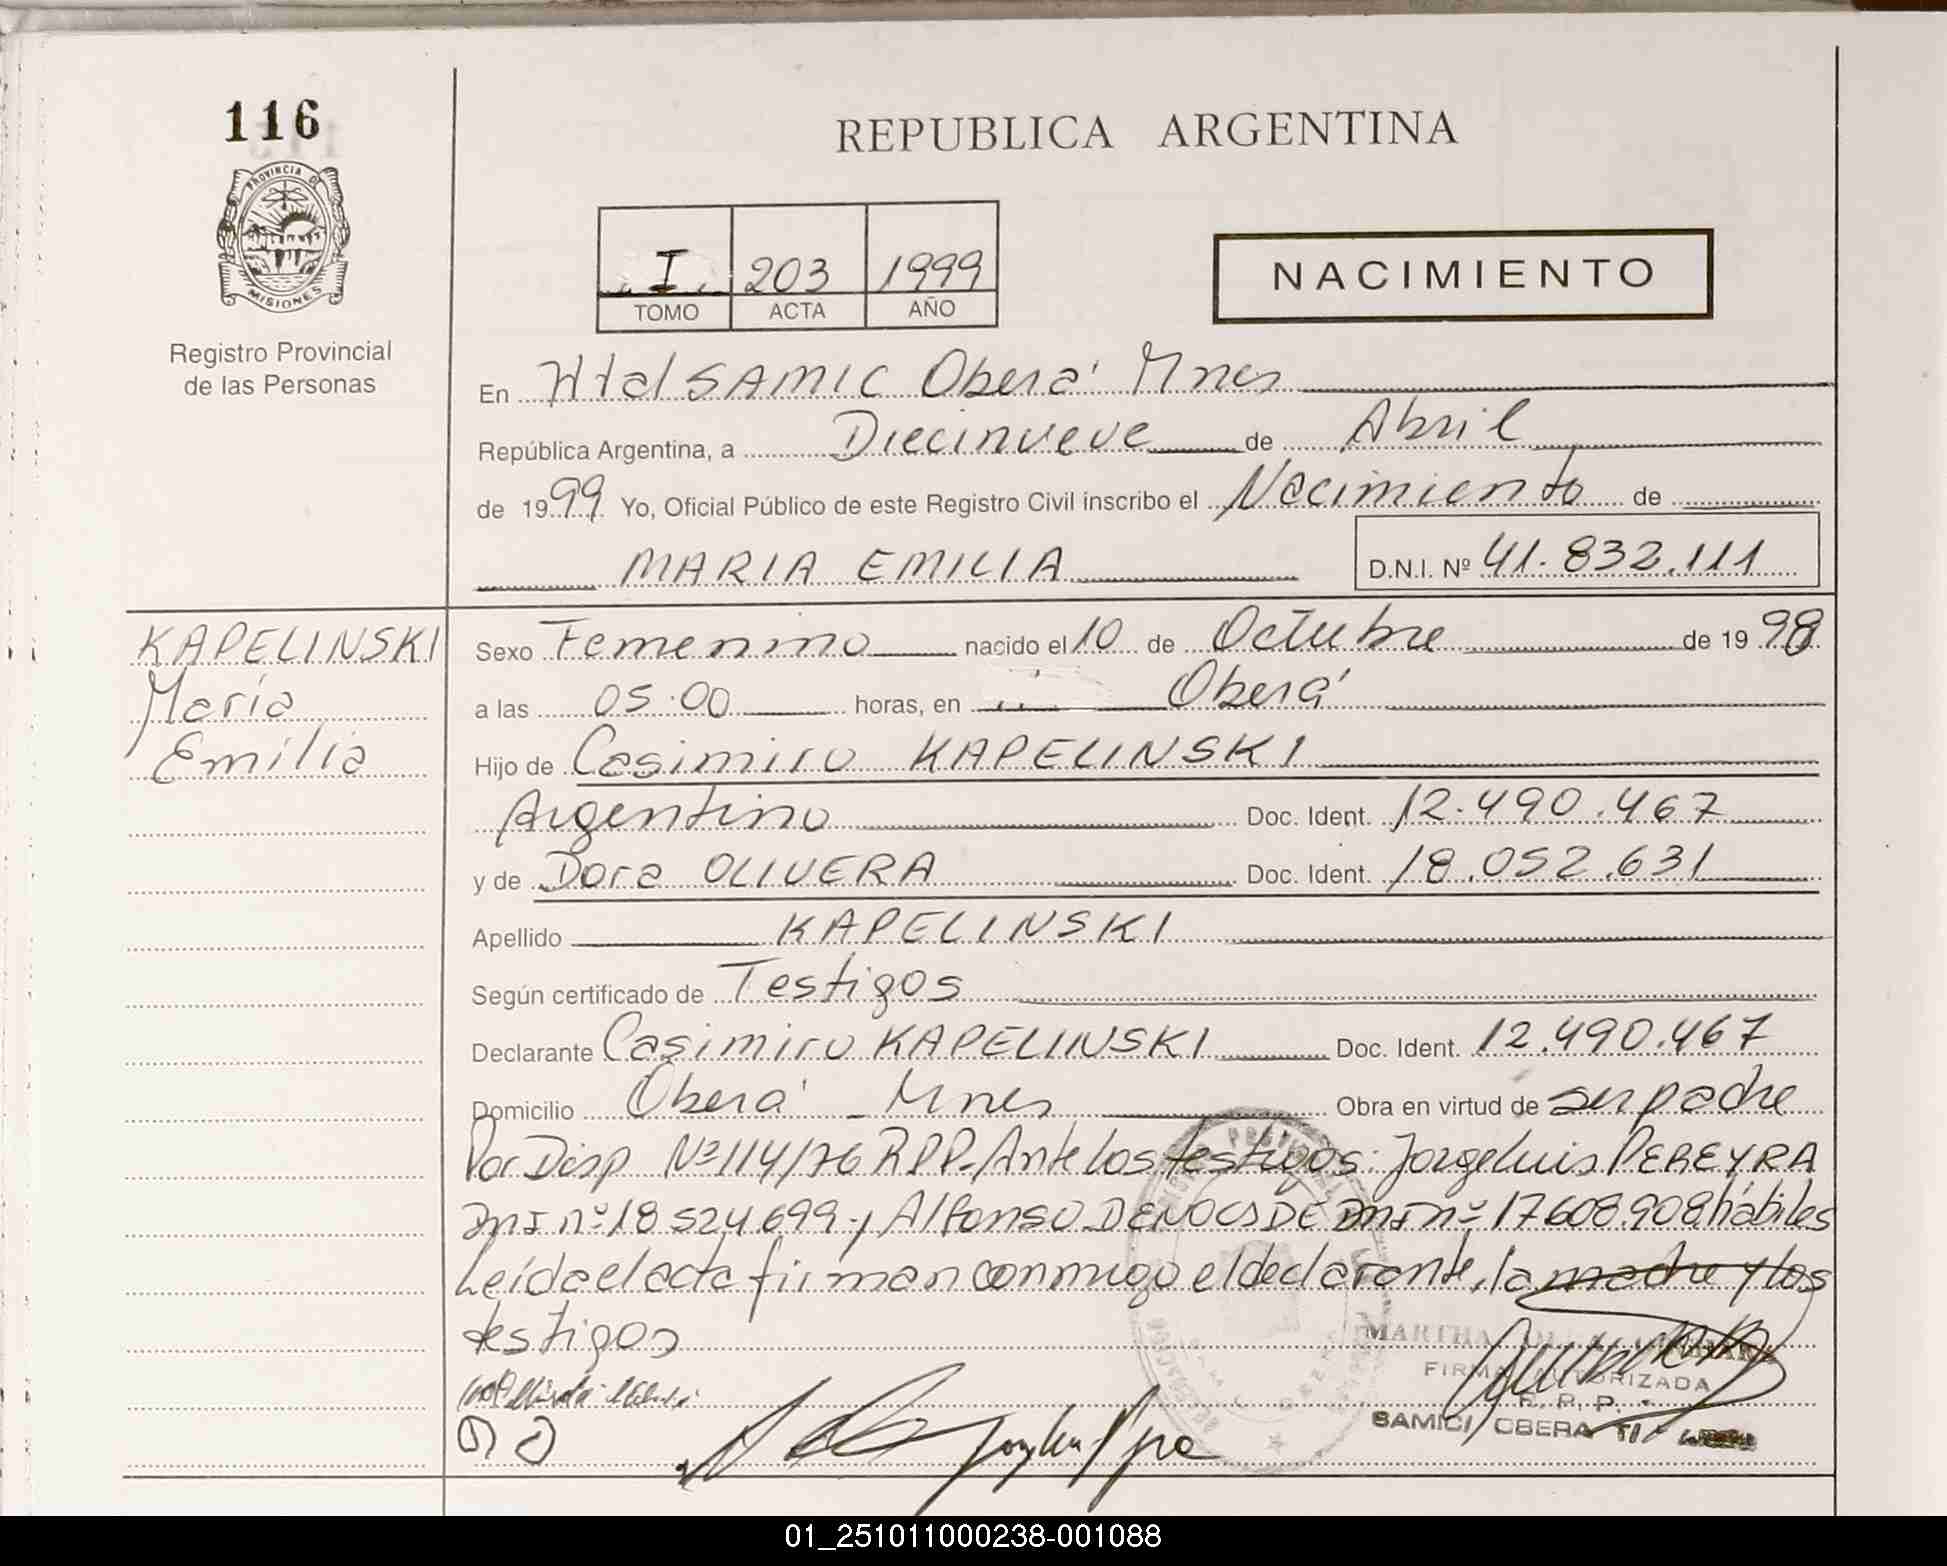 116
REPUBLICA ARGENTINA
PROVINCIA DE
MISIONES
Registro Provincial
de las Personas
I 203 1999
TOMO ACTA AÑO
NACIMIENTO
En Htal SAMIC Oberá Mnes
República Argentina, a Diecinueve de Abril
de 1999 Yo, Oficial Público de este Registro Civil inscribo el Nacimiento de
MARIA EMILIA D.N.I. Nº 41.832.111
KAPELINSKI
María
Emilia
Sexo Femenino nacido el 10 de Octubre de 1998
a las 05:00 horas, en Oberá
Hijo de Casimiro KAPELINSKI
Argentino Doc. Ident. 12.490.467
y de Dora OLIVERA Doc. Ident. 18.052.631
Apellido KAPELINSKI
Según certificado de Testigos
Declarante Casimiro KAPELINSKI Doc. Ident. 12.490.467
Domicilio Oberá - Mnes Obra en virtud de ser padre
Por Disp Nº 114/76 RPP. Ante los testigos: Jorge Luis PEREYRA
DNI nº 18524699 y Alfonso DNI nº 17608.908 hábiles
Leída el acta firman conmigo el declarante, la madre y los
testigos
MARTHA
FIRMA AUTORIZADA
R. P. P.
SAMIC OBERA
01_251011000238-001088